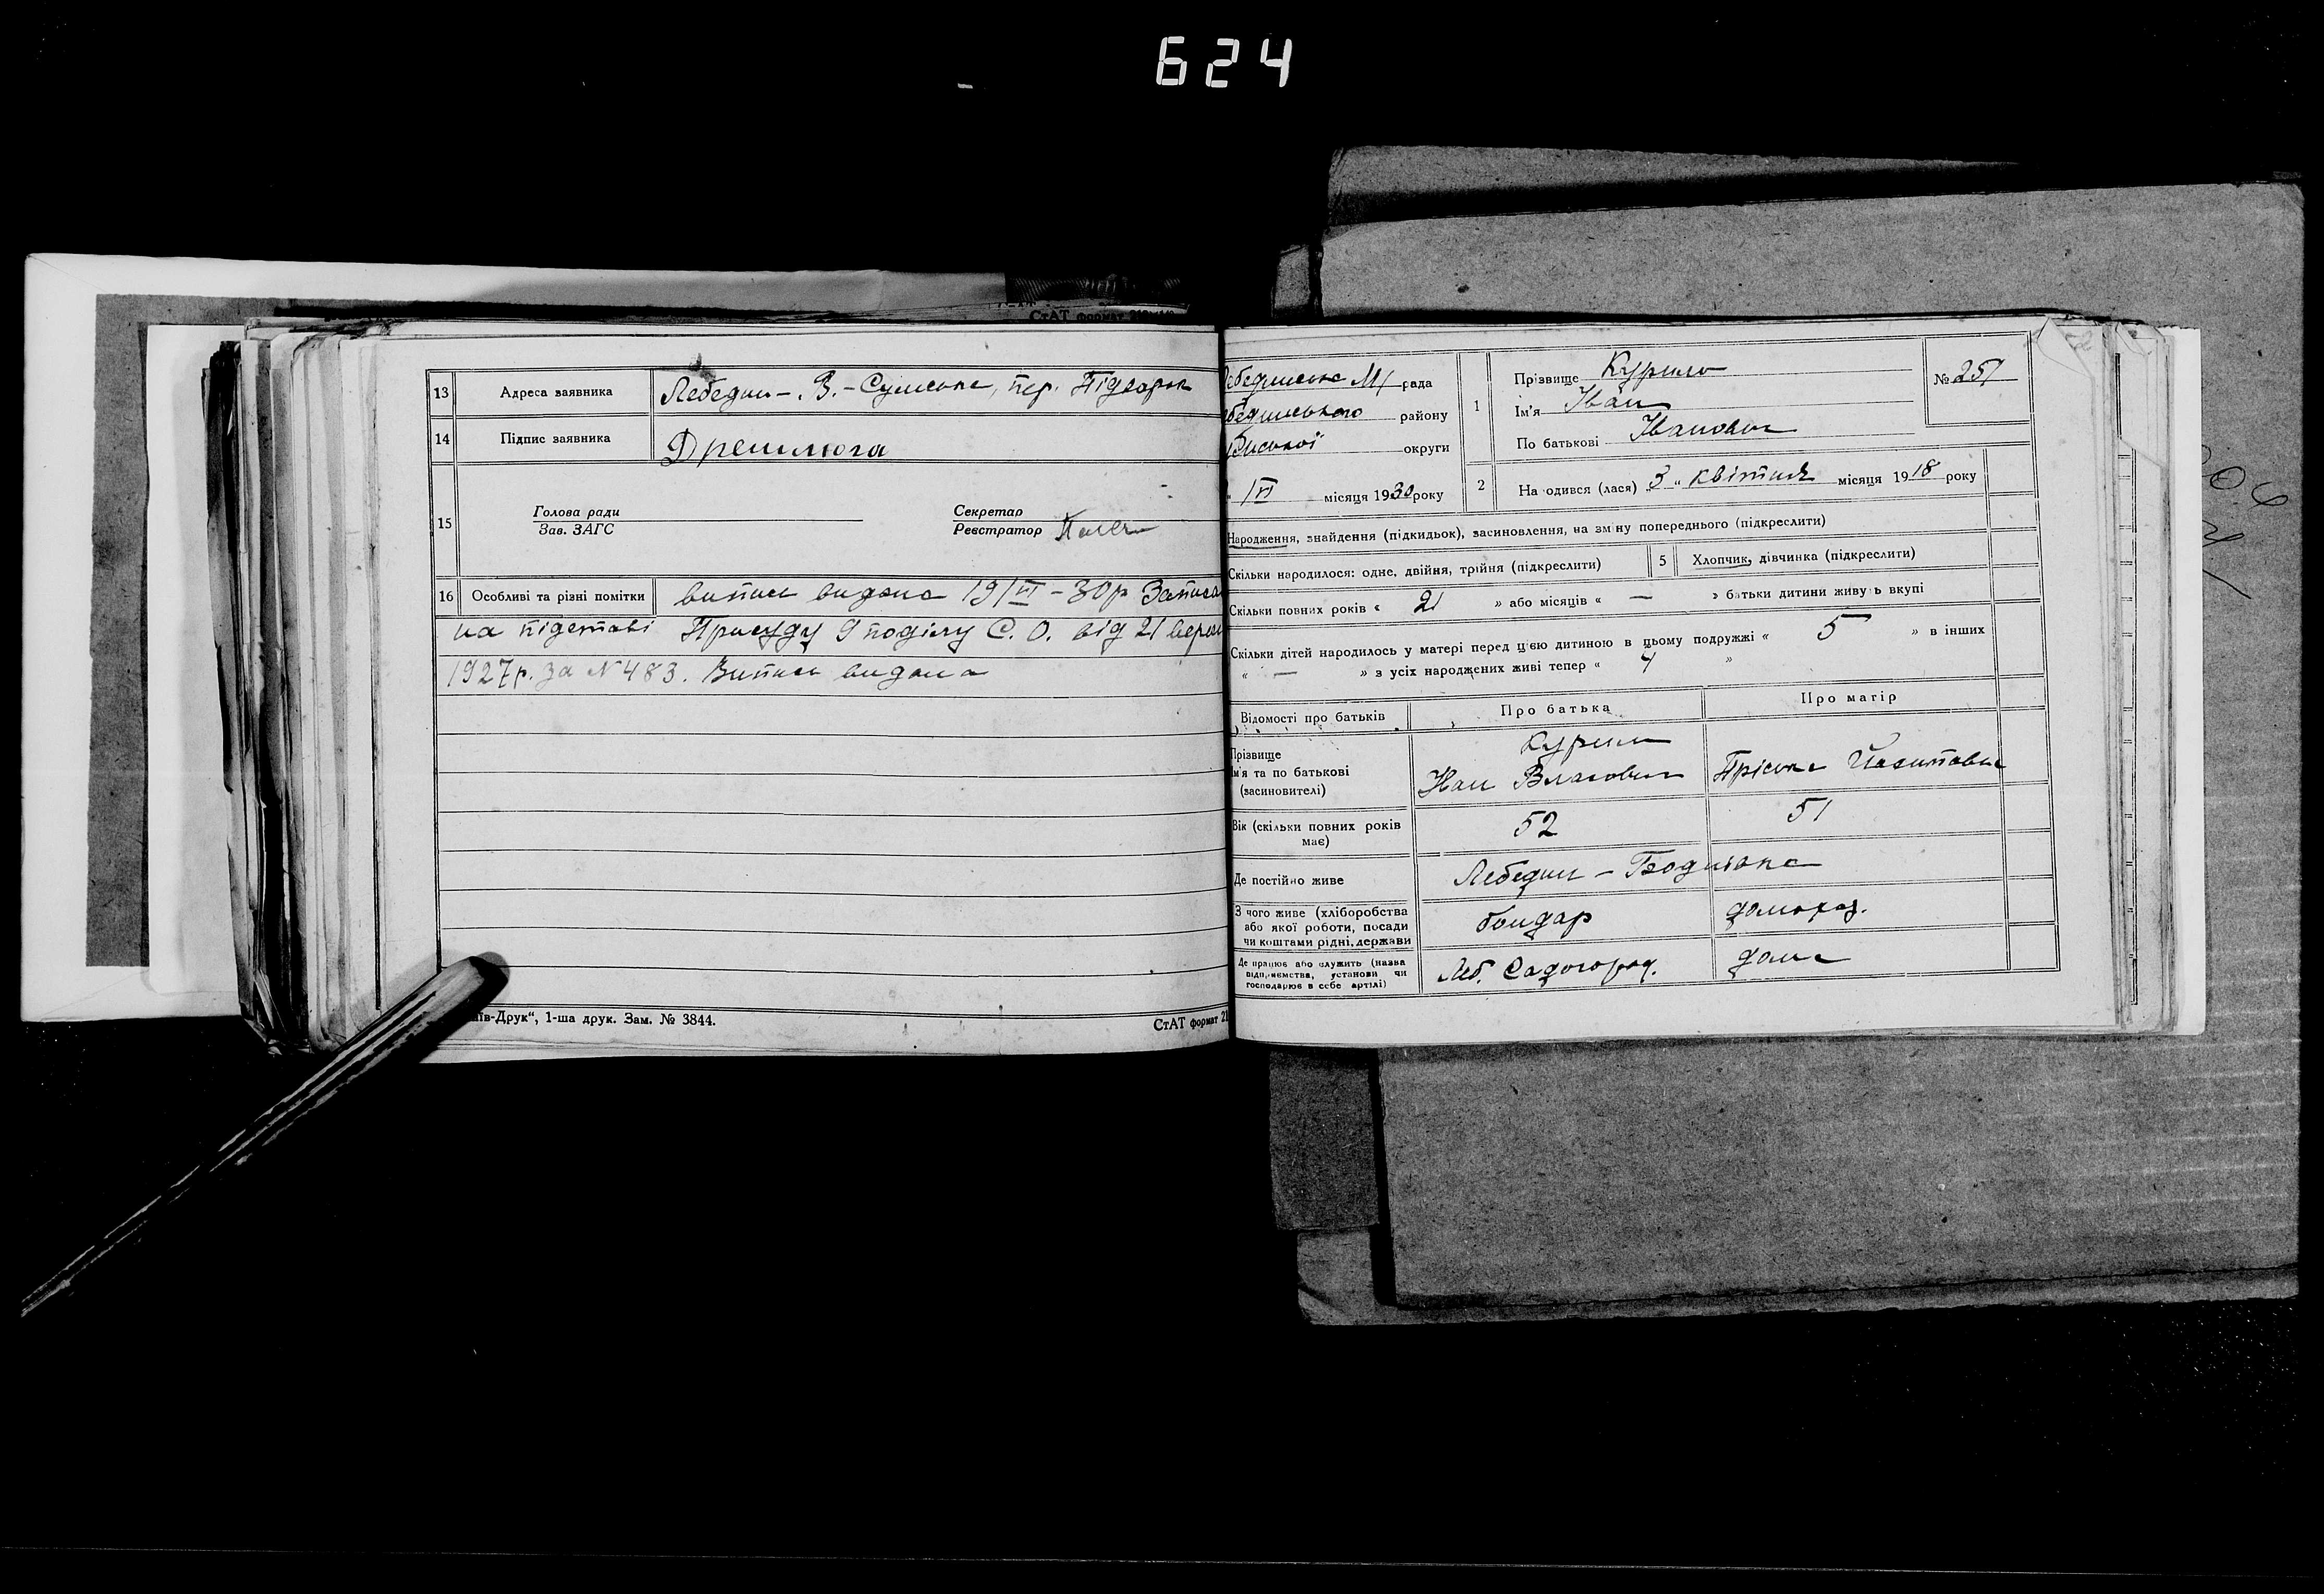 624
СтАТ формат
13 Адреса заявника Лебедин - В. - Сумська, пер. Підварок
14 Підпис заявника Дрешлюга
15 Голова ради
Зав. ЗАГС
Секретар
Реєстратор
16 Особливі та різні помітки випись видана 19/VI - 30 р Записа
на підставі Присуду 9 поділу С. О. від 21 верес
1927 р. за № 483. Випись видана
їв-Друк“, 1-ша друк. Зам. № 3844.
СтАТ формат 21
ебединська М/ рада
бединського району
округи
VI місяця 1930 року
1 Прізвище Курило
Ім'я Іван
По батькові Іванович
№ 251
2 На одився (лася) „3“ квітня місяця 1918 року
Народження, знайдення (підкидьок), засиновлення, на зміну попереднього (підкреслити)
Скільки народилося: одне, двійня, трійня (підкреслити)
5 Хлопчик, дівчинка (підкреслити)
Скільки повних років « 21 » або місяців « — » батьки дитини живуть вкупі
Скільки дітей народилось у матері перед цією дитиною в цьому подружжі « 5 » в інших
« — » з усіх народжених живі тепер « 4 »
Відомості про батьків
Про батька
Про матір
Прізвище
м'я та по батькові
(засиновителі)
Курило
Іван Власович
Пріська
Вік (скільки повних років
має)
52
51
Де постійно живе
Лебедин -
З чого живе (хліборобства
або якої роботи, посади
чи коштами рідні, держави
бондар
домогос.
Де працює або служить (назва
підприємства, установи чи
господарює в себе артілі)
Леб. Садогород.
дома